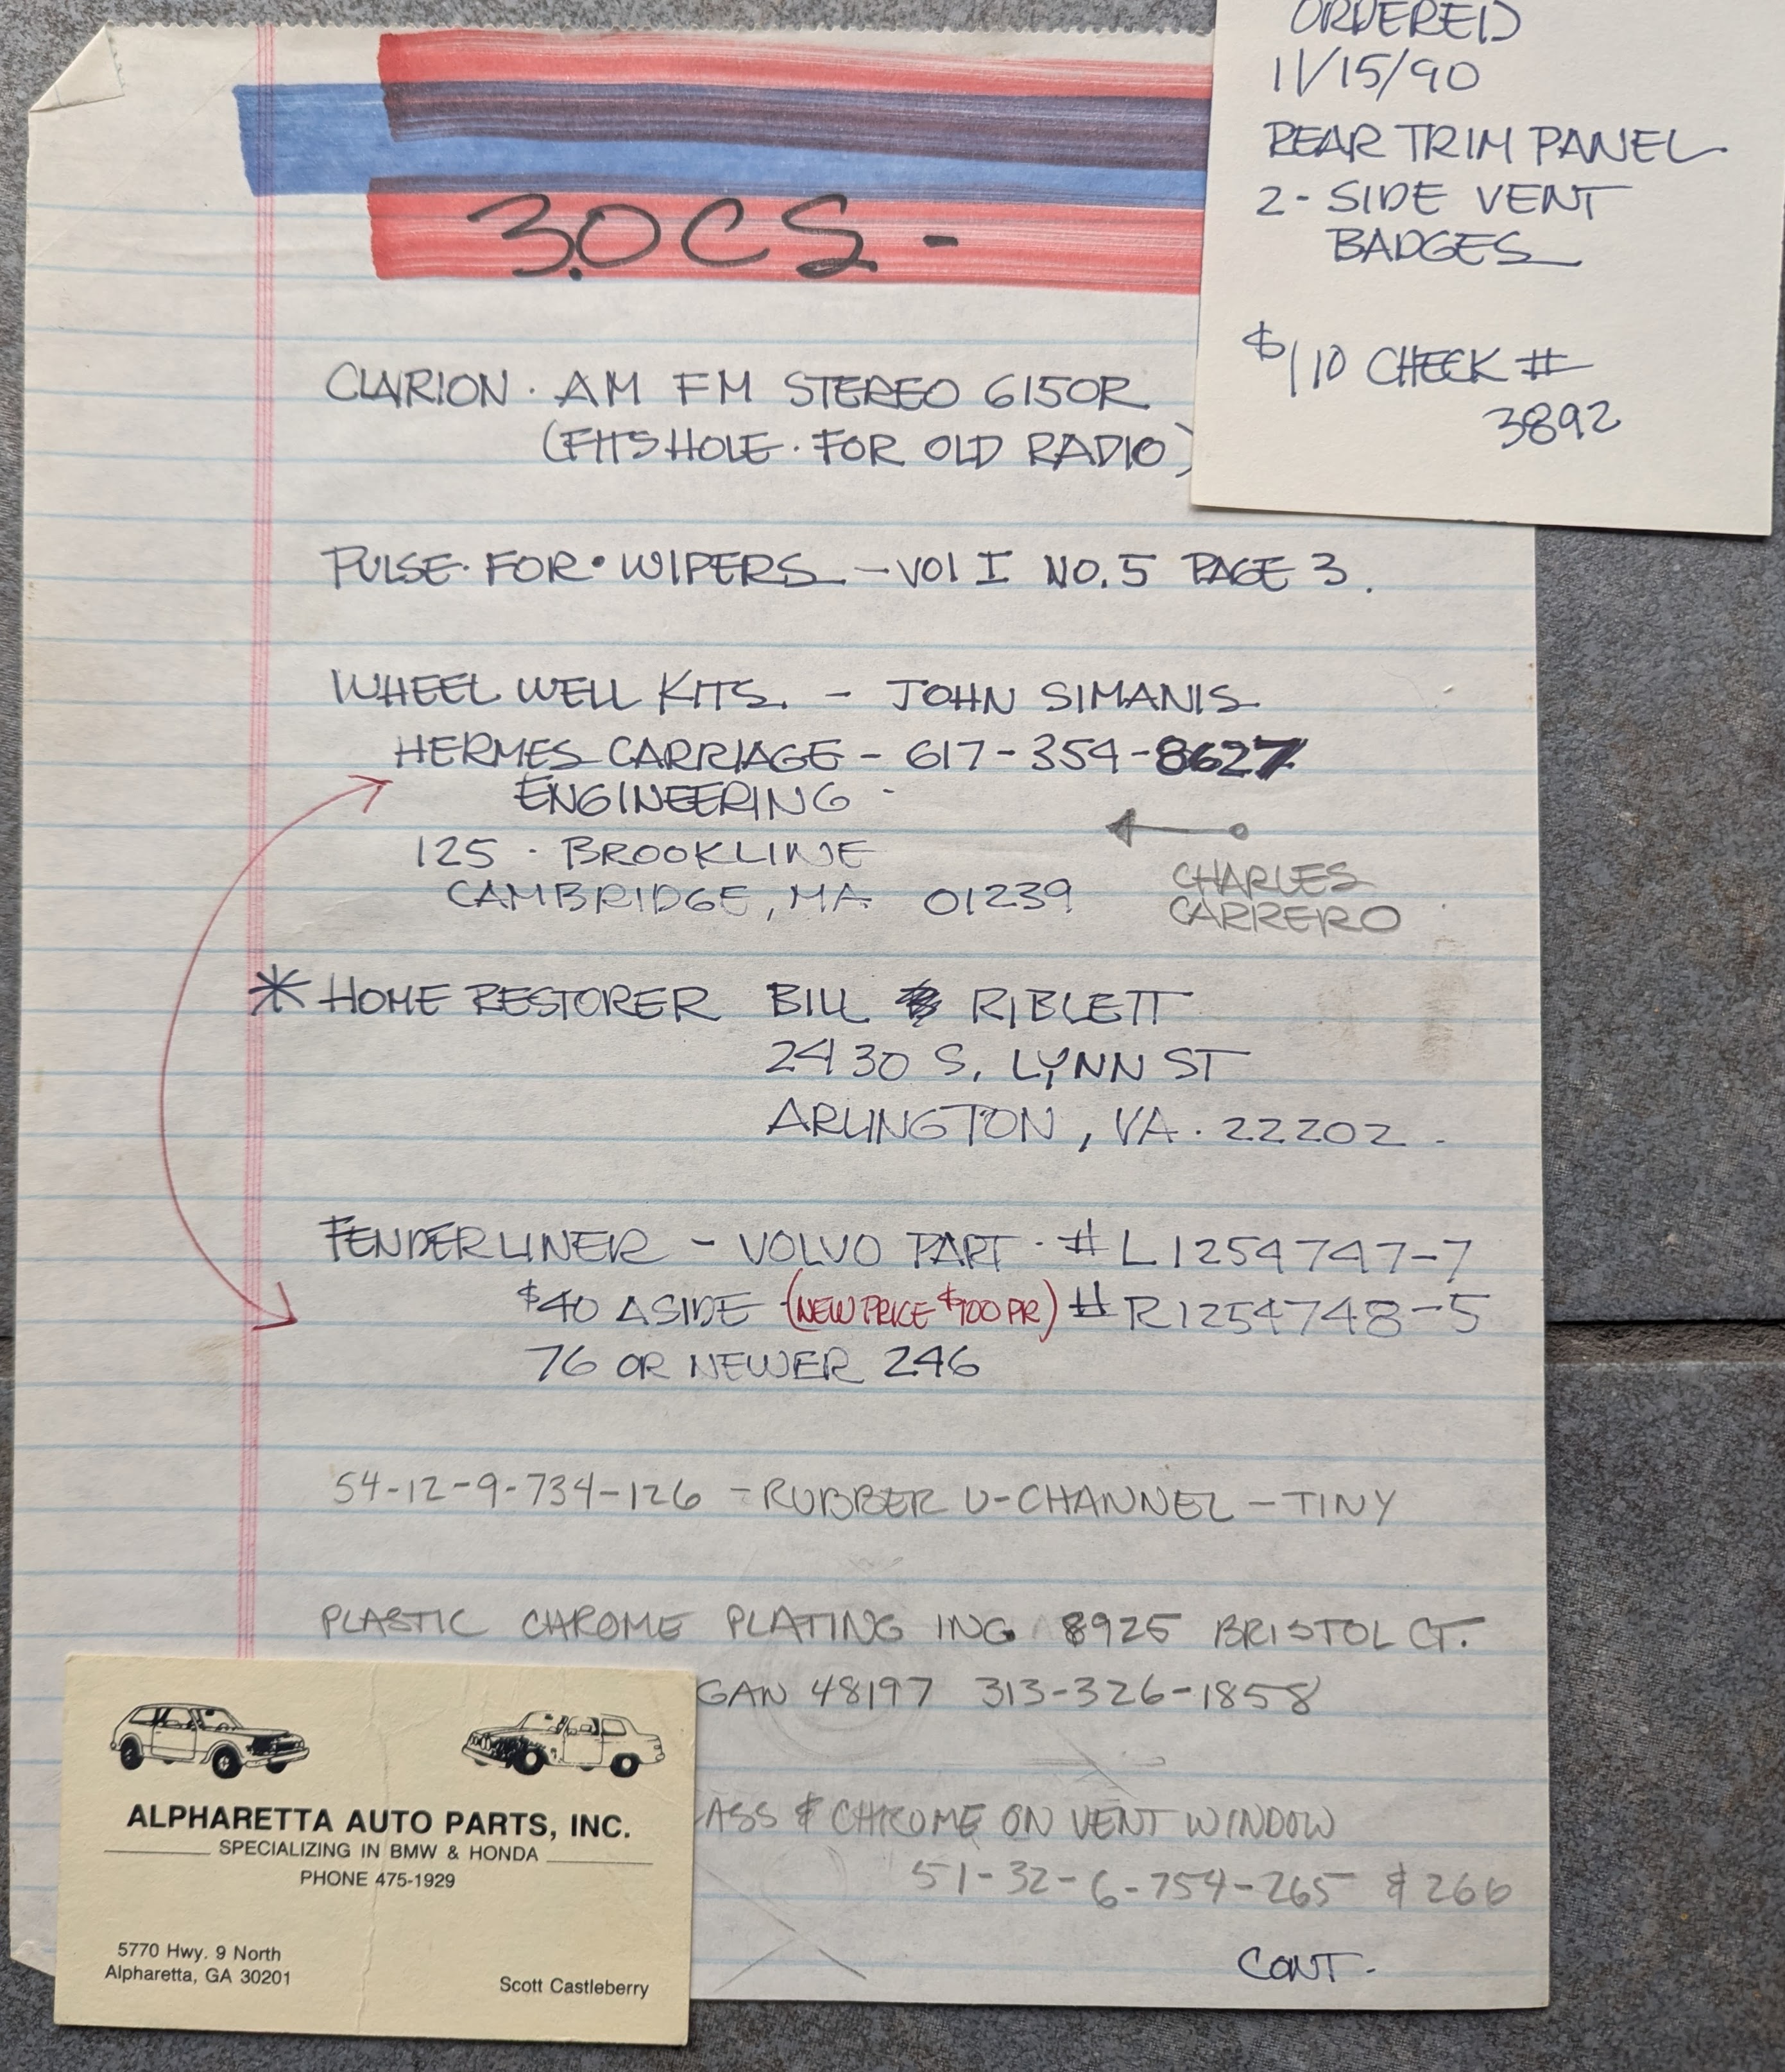 3.0CS -
CLARION · AM FM STEREO 6150R
(FITS HOLE · FOR OLD RADIO)
PULSE · FOR · WIPERS - VOL I NO. 5 PAGE 3.
WHEEL WELL KITS. - JOHN SIMANIS
HERMES CARRIAGE - 617-354-8627
ENGINEERING -
125 · BROOKLINE
CAMBRIDGE, MA 01239
CHARLES
CARRERO
* HOME RESTORER BILL RIBLETT
2430 S. LYNN ST
ARLINGTON, VA. 22202 -
FENDERLINER - VOLVO PART · # L 1254747-7
$40 A SIDE (NEW PRICE $100 PR) # R1254748-5
76 OR NEWER 246
54-12-9-734-126 - RUBBER U-CHANNEL - TINY
PLASTIC CHROME PLATING ING 8925 BRISTOL CT.
GAN 48197 313-326-1858
ASS & CHROME ON VENT WINDOW
51-32-6-754-265 & 266
CONT -
ORDERED
11/15/90
REAR TRIM PANEL
2 - SIDE VENT
BADGES
$110 CHECK #
3892
ALPHARETTA AUTO PARTS, INC.
SPECIALIZING IN BMW & HONDA
PHONE 475-1929
5770 Hwy. 9 North
Alpharetta, GA 30201
Scott Castleberry